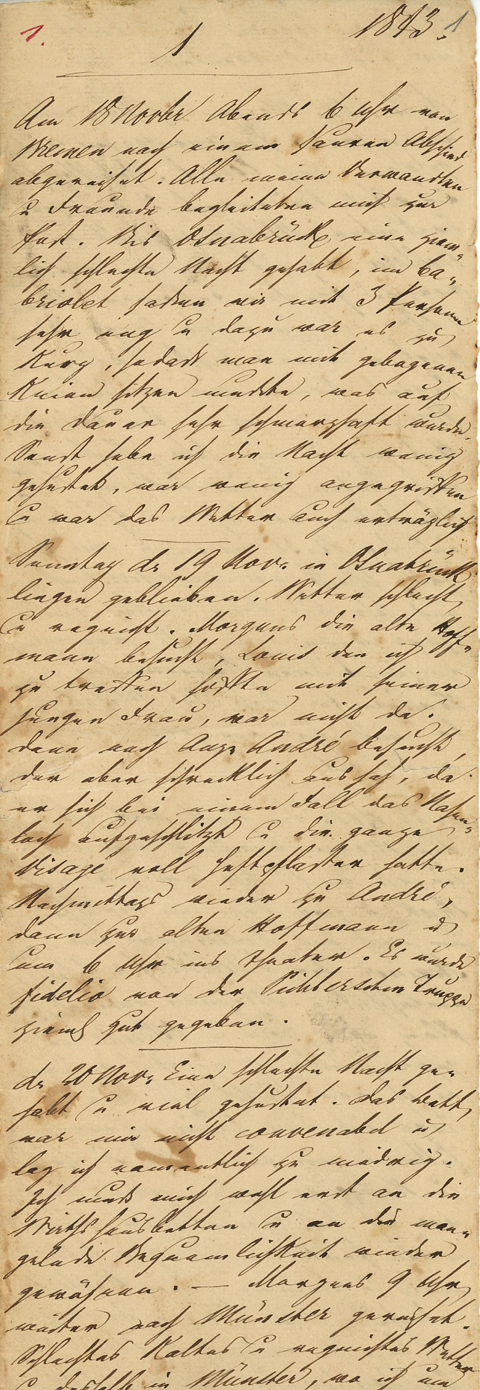 1.
1
1843. 1
Am 18 Novbr Abends 6 Uhr von
Bremen nach einem sauren Abschied
abgereiset. Alle meine Verwandten
u Freunde begleiteten mich zur
Post. Bis Osnabrück eine ziem-
lich schlechte Nacht gehabt, im Ca-
briolet saßen wir mit 3 Personen
sehr eng u dazu war es zu
kurz, sodaß man mit gebogenen
Knieen sitzen mußte, was auf
die Dauer sehr schmerzhaft wurde.
Sonst habe ich die Nacht wenig
gehustet, war wenig angegriffen
u war das Wetter auch erträglich
Sonntag d. 19 Nov. in Osnabrück
liegen geblieben. Wetter schlecht
u regnicht. Morgens die alte Hoff-
mann besucht, Louis den ich
zu treffen hoffte mit seiner
jungen Frau, war nicht da.
dann noch Aug. André besucht,
der aber schrecklich aussah, da
er sich bei einem Fall das Nasen-
loch aufgeschlitzt u die ganze
Visage voll Heftpflaster hatte.
Nachmittags wieder zu André,
dann zur alten Hoffmann u
um 6 Uhr ins Theater. Es wurde
Fidelio von der Pichlerschen Truppe
ziemlich gut gegeben.
d. 20 Nov. Eine schlechte Nacht ge-
habt u viel gehustet. Das Bett
war mir nicht convenabel u
lag ich namentlich zu niedrig.
Ich muß mich wohl erst an die
Wirthshausbetten u an die man-
gelnde Bequemlichkeit wieder
gewöhnen. — Morgens 9 Uhr
weiter nach Münster gereiset.
Schlechtes kaltes u regnichtes Wetter
u desselb in Münster, wo ich um